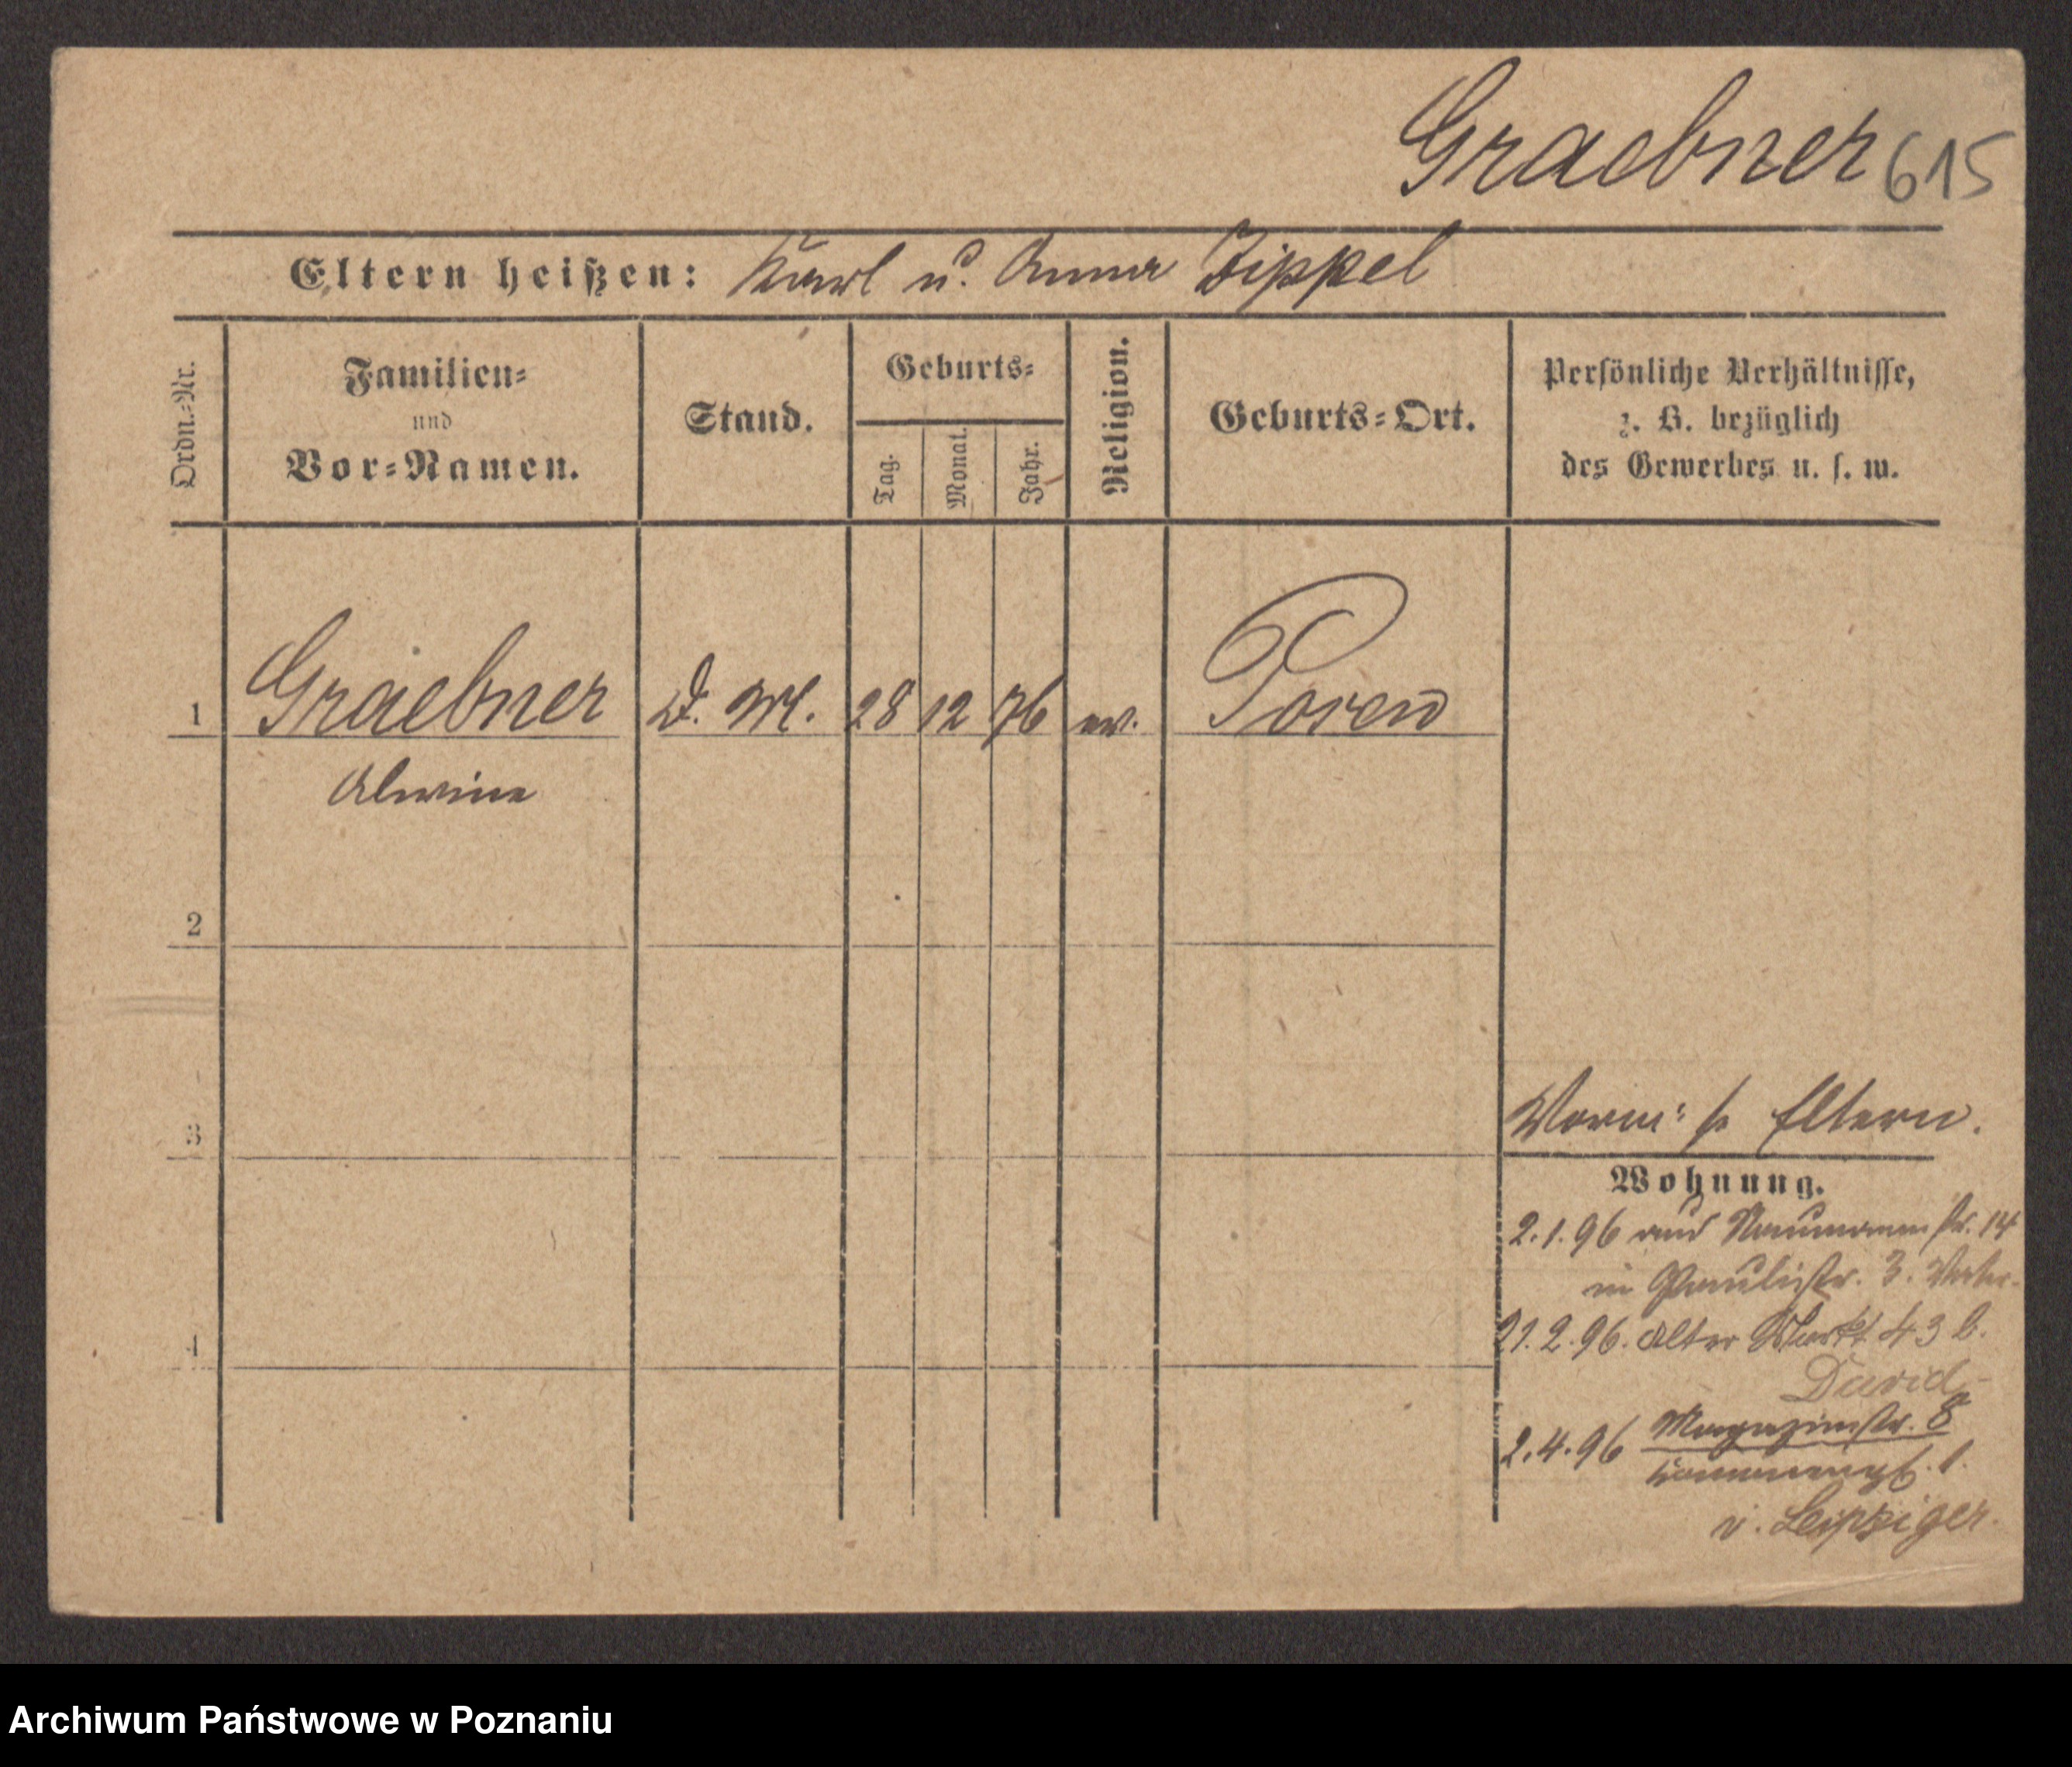 Graebner 615
Eltern heißen: Karl u. Anna Zippel
Ordn.-Nr.
Familien-
und
Vor-Namen.
Stand.
Geburts-
Tag.
Monat.
Jahr.
Religion.
Geburts-Ort.
Persönliche Verhältnisse,
z. B. bezüglich
des Gewerbes u. s. w.
1 Graebner D. M. 28 12 76 ev. Posen
Alwine
2
3
4
Eltern.
Wohnung.
2.1.96 aus Naumannstr. 14
in Paulistr. 3.
21.2.96. Alter Markt 43 b.
David
2.4.96 Magazinstr. 8
v. Leipziger.
Archiwum Państwowe w Poznaniu